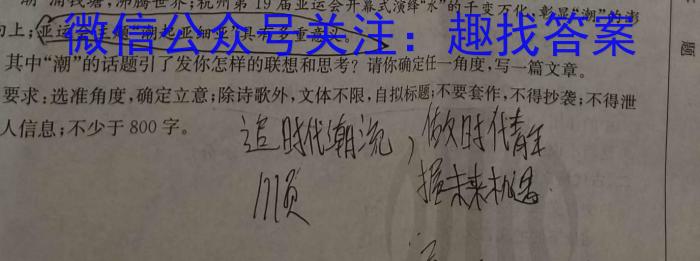 潮"涌钱塘,沸腾世界;杭州第19届亚运会开幕式演绎"水"的千变万化,彰显"潮"的澎
向上;亚运会主题"潮起亚细亚"具有多重意义。
微信公众号关注：趣找答案
其中"潮"的话题引了发你怎样的联想和思考?请你确定任一角度,写一篇文章。
要求:选准角度,确定立意;除诗歌外,文体不限,自拟标题;不要套作,不得抄袭;不得泄
人信息;不少于800字。
追时代潮流,做时代青年
顺 握未来机遇
题